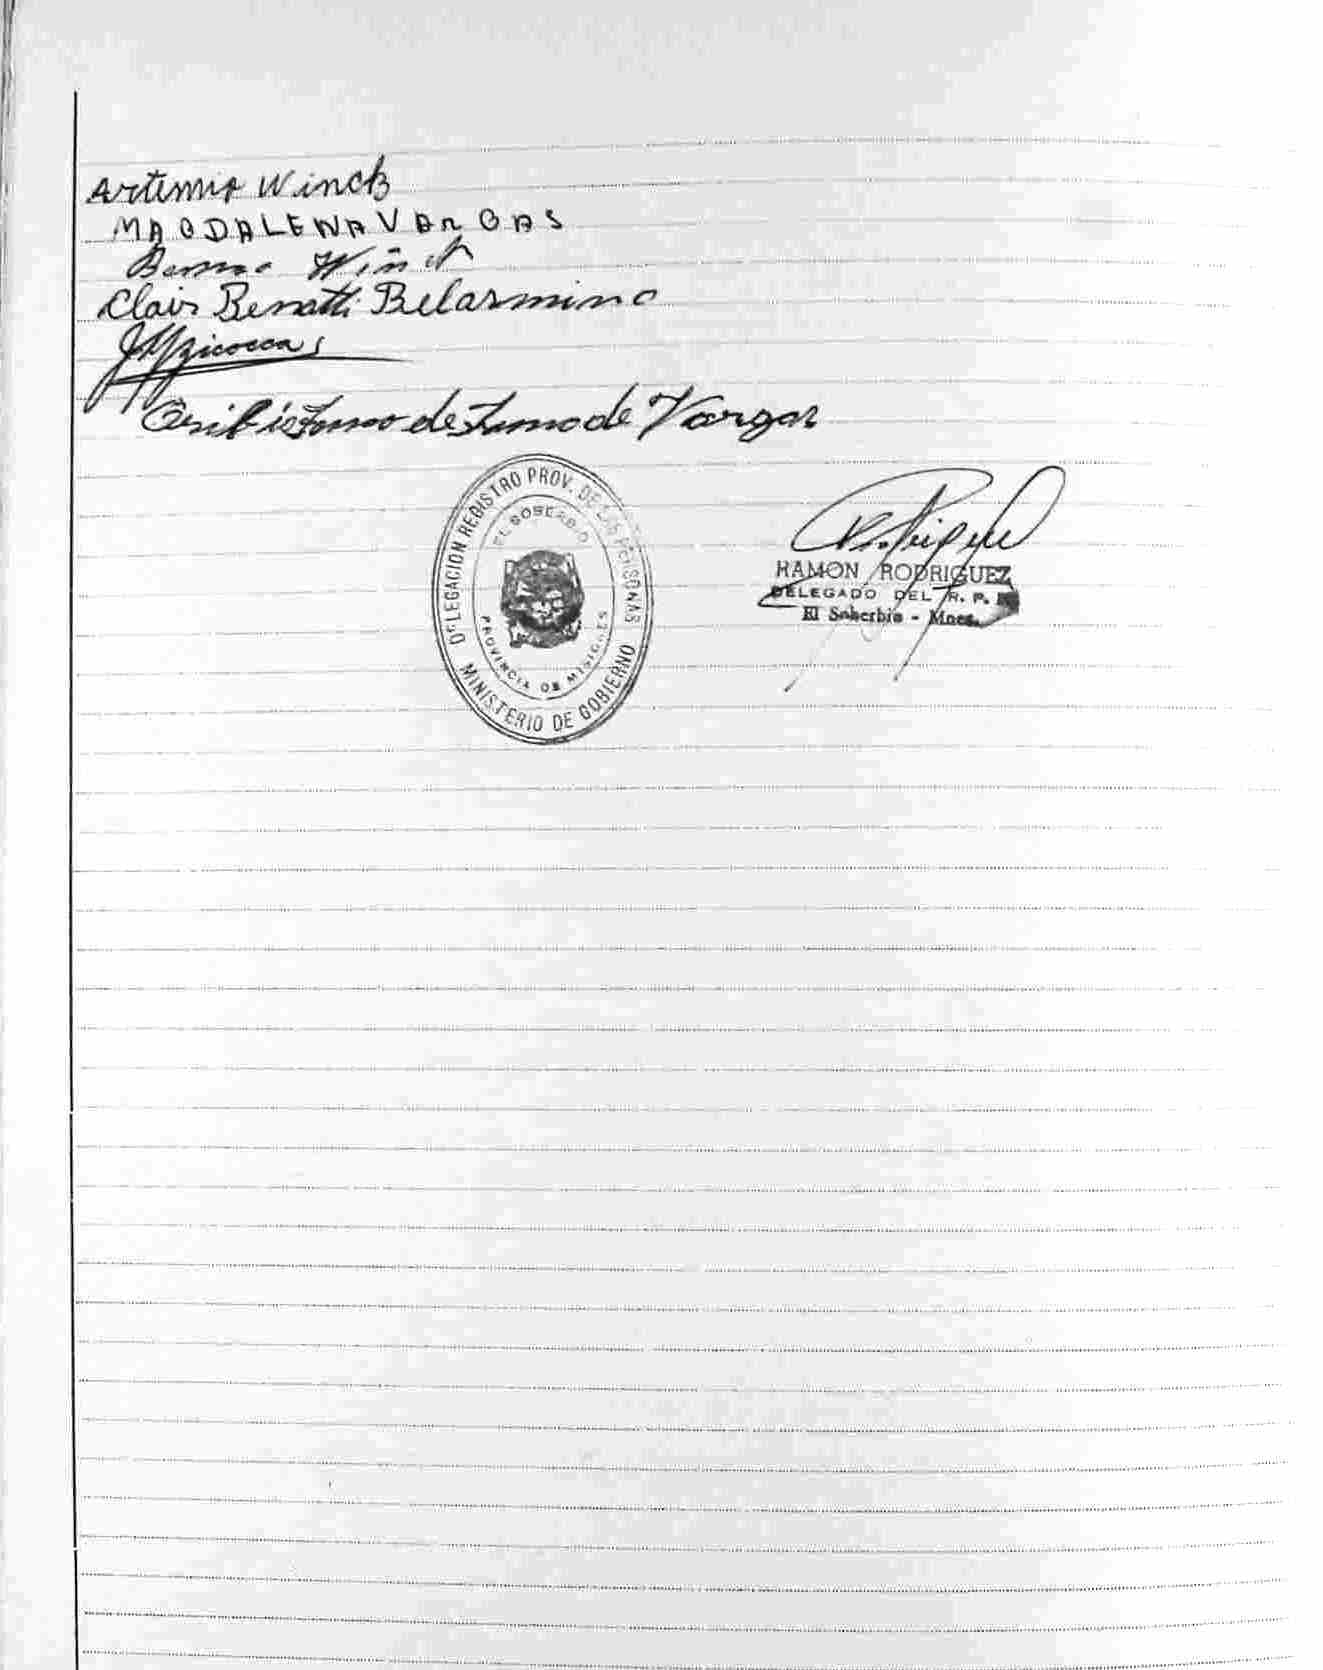 Artemio Winck
MAGDALENA VARGAS
Benno Winck
Clair Benatti Belarmino
de Vargas
DELEGACION REGISTRO PROV. DE LAS PERSONAS
EL SOBERBIO
PROVINCIA DE MISIONES
MINISTERIO DE GOBIERNO
RAMON RODRIGUEZ
DELEGADO DEL R. P.
El Soberbio - Mnes.